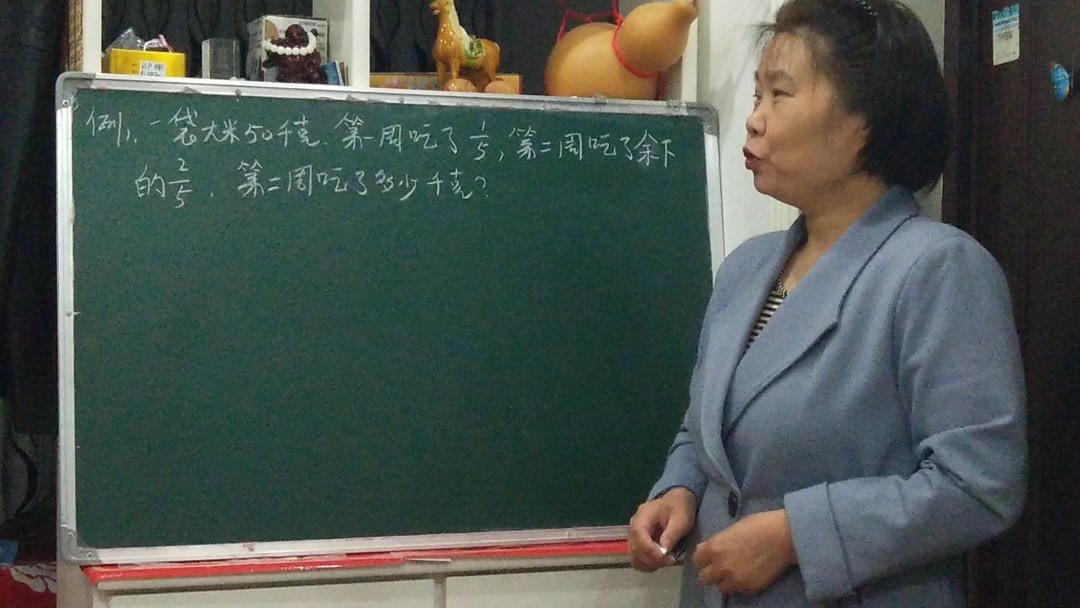 例1、一袋大米50千克.第一周吃了1/5,第二周吃了余下
的2/5.第二周吃了多少千克?